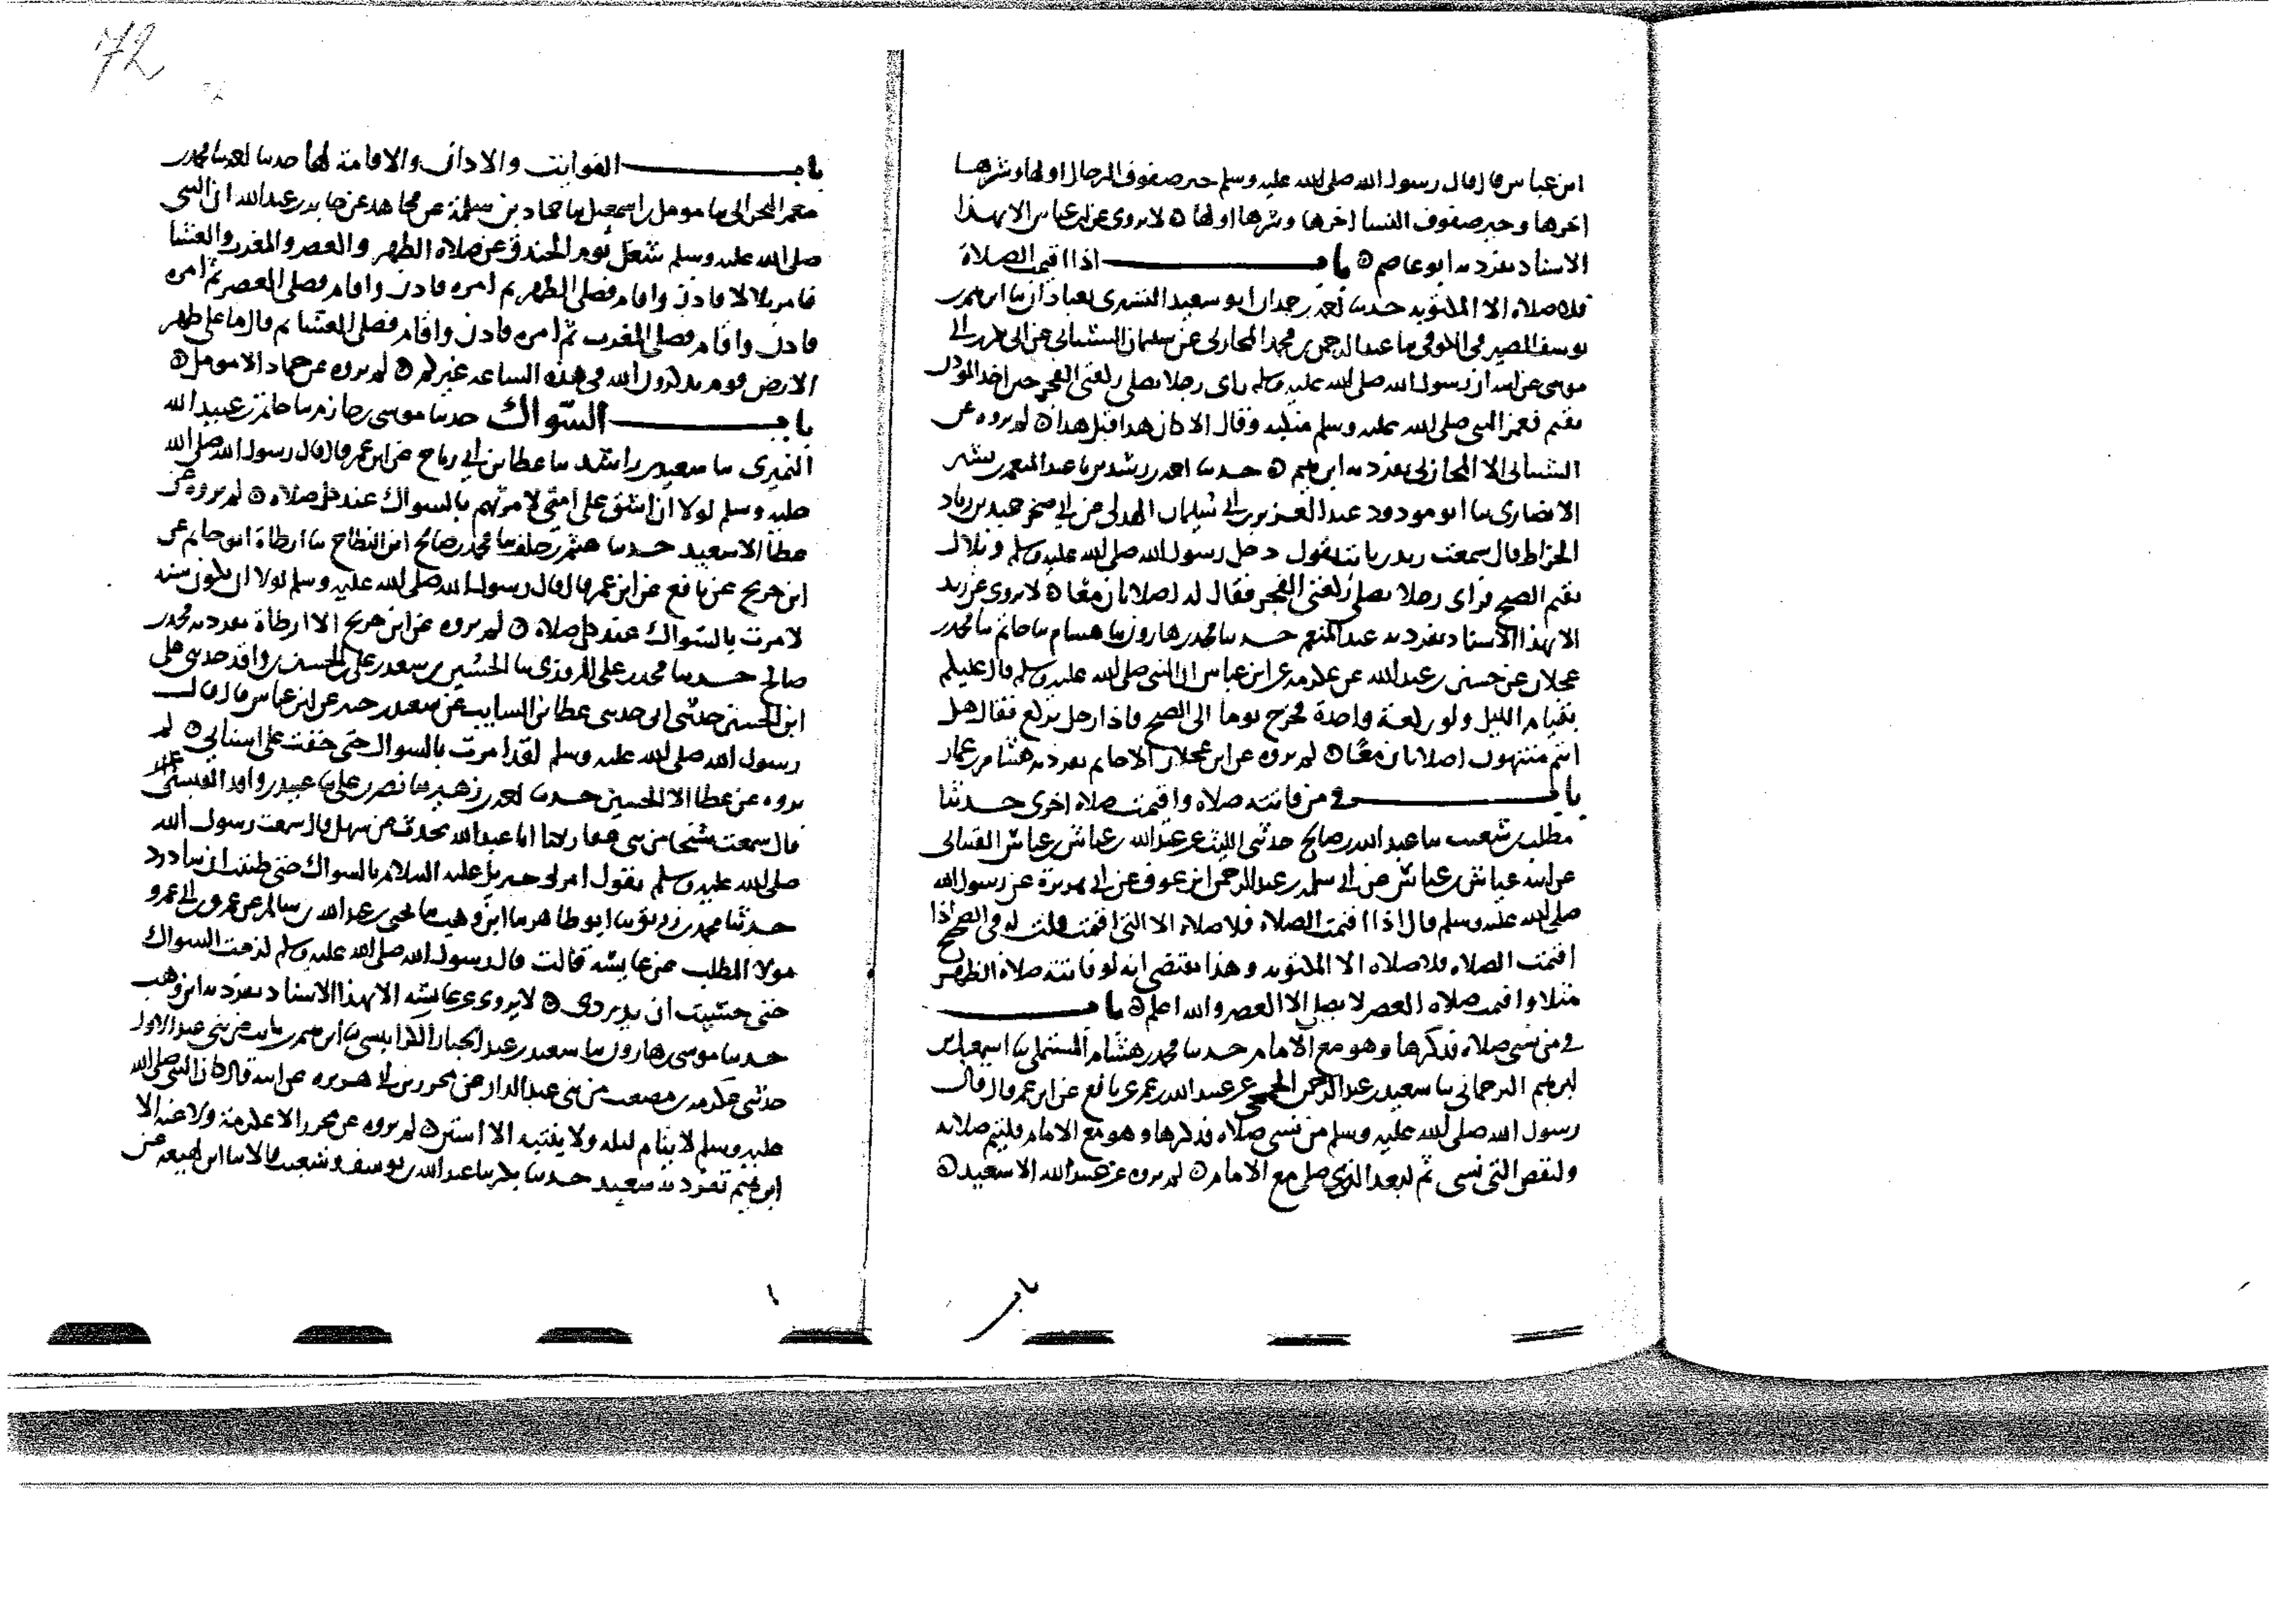 ابن عباس قال قال رسول الله صلى الله عليه وسلم خير صفوف الرجال اولها وشرها
اخرها وخير صفوف النسا اخرها وشرها اولها لا يروى عن ابن عباس الا بهذا
الاسناد تفرد به ابو عاصم باب اذا اقيمت الصلاة
فلا صلاة الا المكتوبة حدثنا احمد بن حمدان ابو سعيد التستري بعبادان ثنا ابرهيم بن
يوسف الصيرفي الكوفي ثنا عبد الرحمن بن محمد المحاربي عن سليمان الشيباني عن ابي بكر بن ابي
موسى عن ابيه ان رسول الله صلى الله عليه وسلم راى رجلا يصلي ركعتي الفجر حين اخذ الموذن
يقيم فغمز النبي صلى الله عليه وسلم منكبه وقال الا كان هذا قبل هذا لم يروه عن
الشيباني الا المحاربي تفرد به ابرهيم حدثنا احمد بن رشدين ثنا عبد المنعم بن بشير
الانصاري ثنا ابو مودود عبد العزيز بن ابي سليمان الهذلي عن ابي صخر حميد بن زياد
الخراط قال سمعت زيد بن ثابت يقول دخل رسول الله صلى الله عليه وسلم وبلال
يقيم الصبح فراى رجلا يصلي ركعتي الفجر فقال له اصلاتان معا لا يروى عن زيد
الا بهذا الاسناد تفرد به عبد المنعم حدثنا محمد بن هارون ثنا هشام ثنا حاتم ثنا محمد بن
عجلان عن حسين بن عبد الله عن عكرمة عن ابن عباس ان النبي صلى الله عليه وسلم قال عليكم
بقيام الليل ولو ركعة واحدة فخرج يوما الى الصبح فاذا رجل يركع فقال هل
انتم منتهون اصلاتان معا لم يروه عن ابن عجلان الا حاتم تفرد به هشام بن عمار
باب في من فاتته صلاة واقيمت صلاة اخرى حدثنا
مطلب بن شعيب ثنا عبد الله بن صالح حدثني الليث عن عبد الله بن عياش بن عباس القتباني
عن ابيه عياش بن عباس عن ابي سلمة بن عبد الرحمن ابن عوف عن ابي هريرة عن رسول الله
صلى الله عليه وسلم قال اذا اقيمت الصلاة فلا صلاة الا التي اقيمت قلت له في الصحيح اذا
اقيمت الصلاة فلا صلاة الا المكتوبة وهذا يقتضي انه لو فاتته صلاة الظهر
مثلا واقيمت صلاة العصر لا يصلي الا العصر والله اعلم باب
في من نسي صلاة فذكرها وهو مع الامام حدثنا محمد بن هشام المستملي ثنا اسمعيل بن
ابرهيم الترجماني ثنا سعيد بن عبد الرحمن الجمحي عن عبيد الله بن عمر عن نافع عن ابن عمر قال قال
رسول الله صلى الله عليه وسلم من نسي صلاة فذكرها وهو مع الامام فليتم صلاته
وليقض التي نسي ثم ليعد الذي صلى مع الامام لم يروه عن عبيد الله الا سعيد
باب الفوايت والاذان والاقامة لها حدثنا احمد ثنا محمد بن
معمر البحراني ثنا مومل بن اسمعيل ثنا حماد بن سلمة عن مجاهد عن جابر بن عبد الله ان النبي
صلى الله عليه وسلم شغل يوم الخندق عن صلاة الظهر والعصر والمغرب والعشا
فامر بلالا فاذن واقام فصلى الظهر ثم امره فاذن واقام فصلى العصر ثم امره
فاذن واقام فصلى المغرب ثم امره فاذن واقام فصلى العشا ثم قال ما على ظهر
الارض قوم يذكرون الله في هذه الساعة غيركم لم يروه عن حماد الا مومل
باب السواك حدثنا موسى بن حازم ثنا حاتم بن عبيد الله
النميري ثنا سعيد بن راشد ثنا عطا بن ابي رباح عن ابن عمر قال قال رسول الله صلى الله
عليه وسلم لولا ان اشق على امتي لامرتهم بالسواك عند كل صلاة لم يروه عن
عطا الا سعيد حدثنا هيثم بن خلف ثنا محمد بن صالح ابن النطاح ثنا ارطاة ابو حاتم عن
ابن جريج عن نافع عن ابن عمر قال قال رسول الله صلى الله عليه وسلم لولا ان يكون سنة
لامرت بالسواك عند كل صلاة لم يروه عن ابن جريج الا ارطاة تفرد به محمد بن
صالح حدثنا محمد بن علي المروزي ثنا الحسين بن سعد بن علي بن الحسين بن واقد حدثني علي
ابن الحسين حدثني ابي حدثني عطا بن السايب عن سعيد بن جبير عن ابن عباس قال قال
رسول الله صلى الله عليه وسلم لقد امرت بالسواك حتى خفت على اسناني لم
يروه عن عطا الا الحسين حدثنا احمد بن زهير ثنا نصر بن علي ثنا عبيد بن واقد القيسي
قال سمعت شيخا من بني غفار يكنا ابا عبد الله يحدث عن سهل قال سمعت رسول الله
صلى الله عليه وسلم يقول امرني جبريل عليه السلام بالسواك حتى ظننت اني سادرد
حدثنا محمد بن رزيق ثنا ابو طاهر ثنا ابن وهب ثنا يحيى بن عبد الله بن سالم عن عمرو بن ابي عمرو
مولا المطلب عن عايشة قالت قال رسول الله صلى الله عليه وسلم لزمت السواك
حتى خشيت ان يدردني لا يروى عن عايشة الا بهذا الاسناد تفرد به ابن وهب
حدثنا موسى بن هارون ثنا سعيد بن عبد الجبار الكرابيسي ثنا ابرهيم بن ثابت من بني عبد الدار
حدثني عكرمة بن مصعب من بني عبد الدار عن محرر بن ابي هريرة عن ابيه قال كان النبي صلى الله
عليه وسلم لا ينام ليلة ولا ينتبه الا استن لم يروه عن محرر الا عكرمة ولا عنه الا
ابرهيم تفرد به سعيد حدثنا بكر ثنا عبد الله بن يوسف وشعيب قالا ثنا ابن لهيعة عن